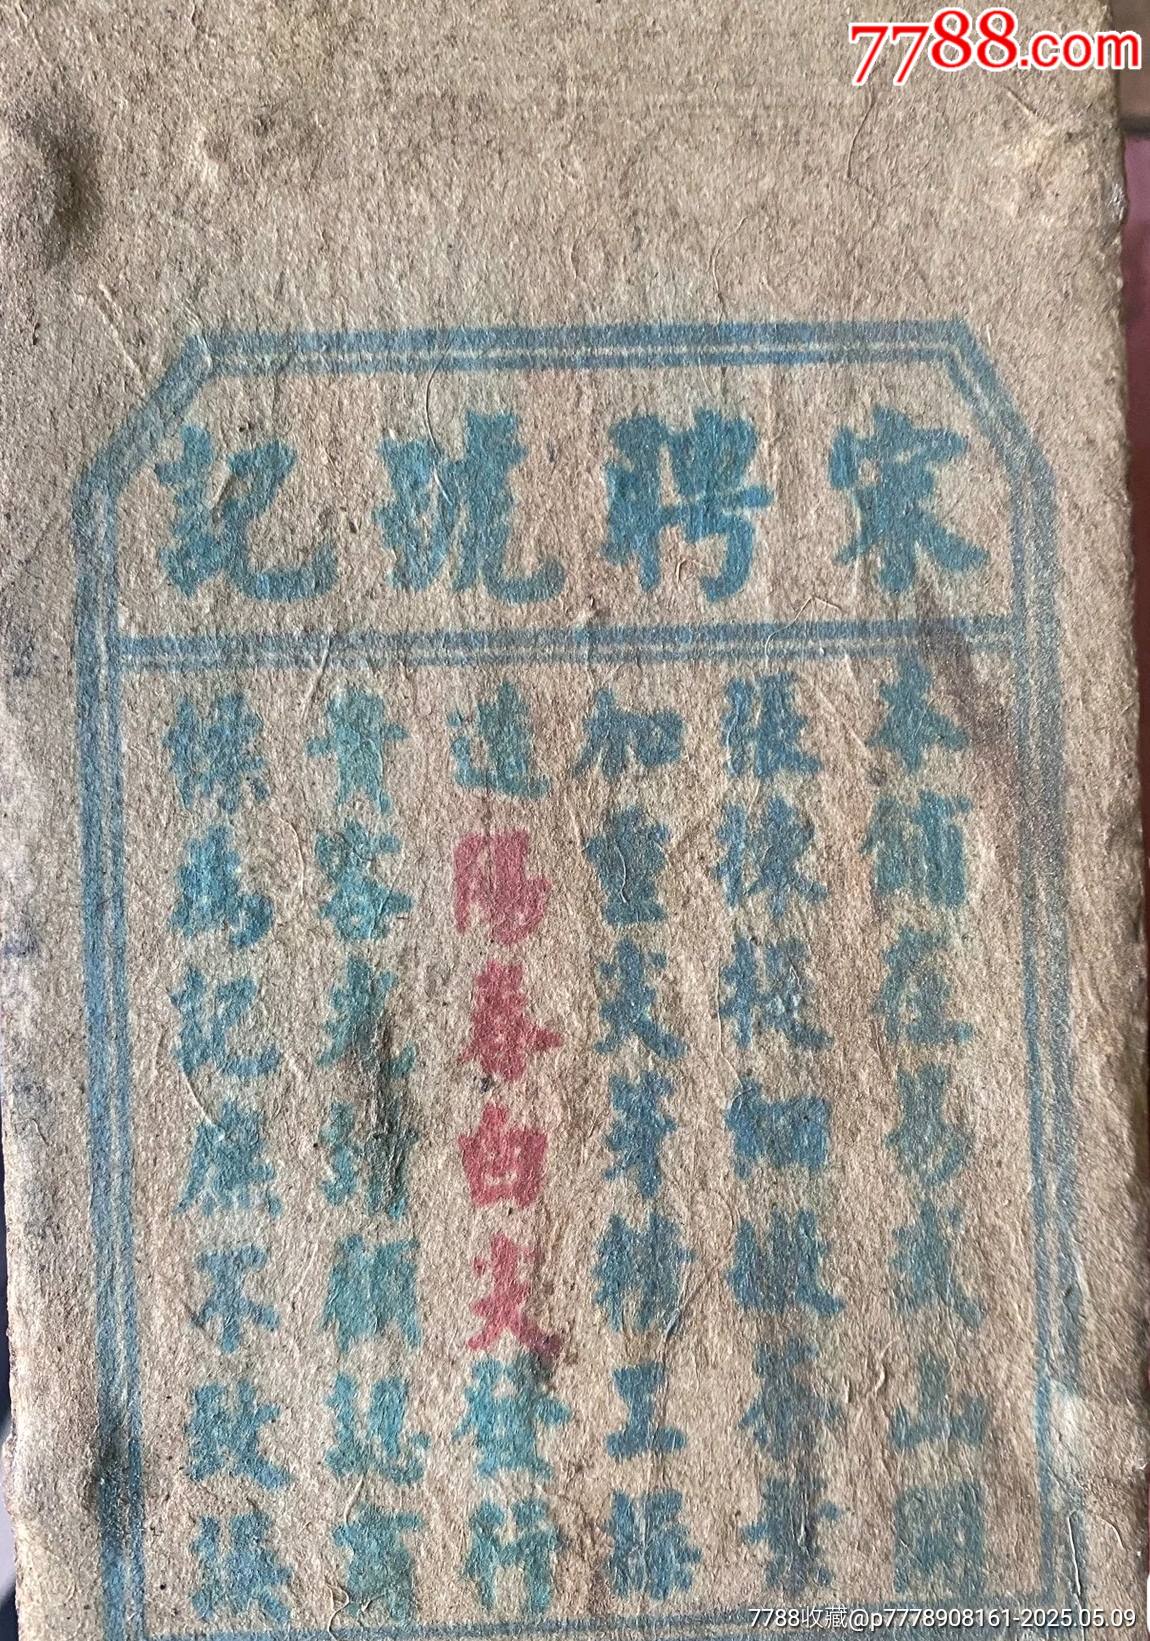 7788.com
宋聘號記
本舖在易武山開
張揀提細嫩茶葉
加重尖芽精工揉
造陽春白尖發行
貴客光顧認商
標為記庶不致悮
7788收藏@p7778908161-2025.05.09